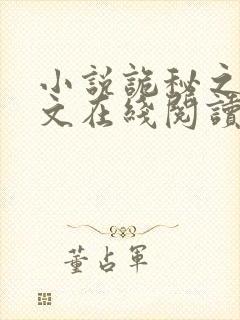 小説詭秘之
文在綫閱讀
董占軍